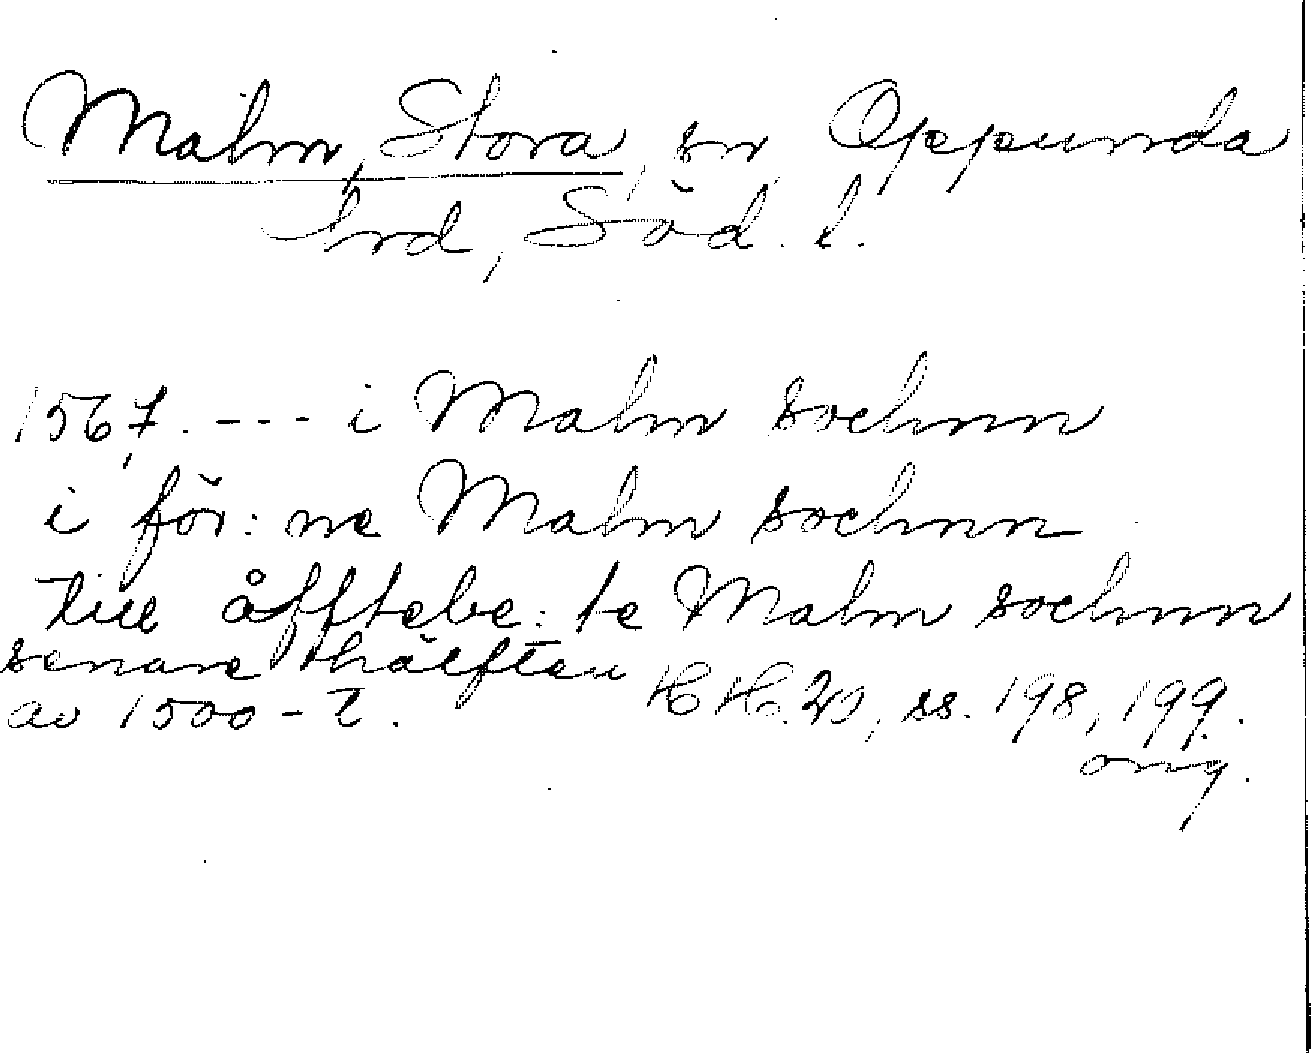 Malm, Stora, sn, Oppunda
hrd, Söd. l.
1567. --- i Malm sochnn
i för: ne Malm sochnn
till åfftebe: te Malm sochnn
senare hälften
av 1500-t.
HH. 20, ss. 198, 199.
orig.